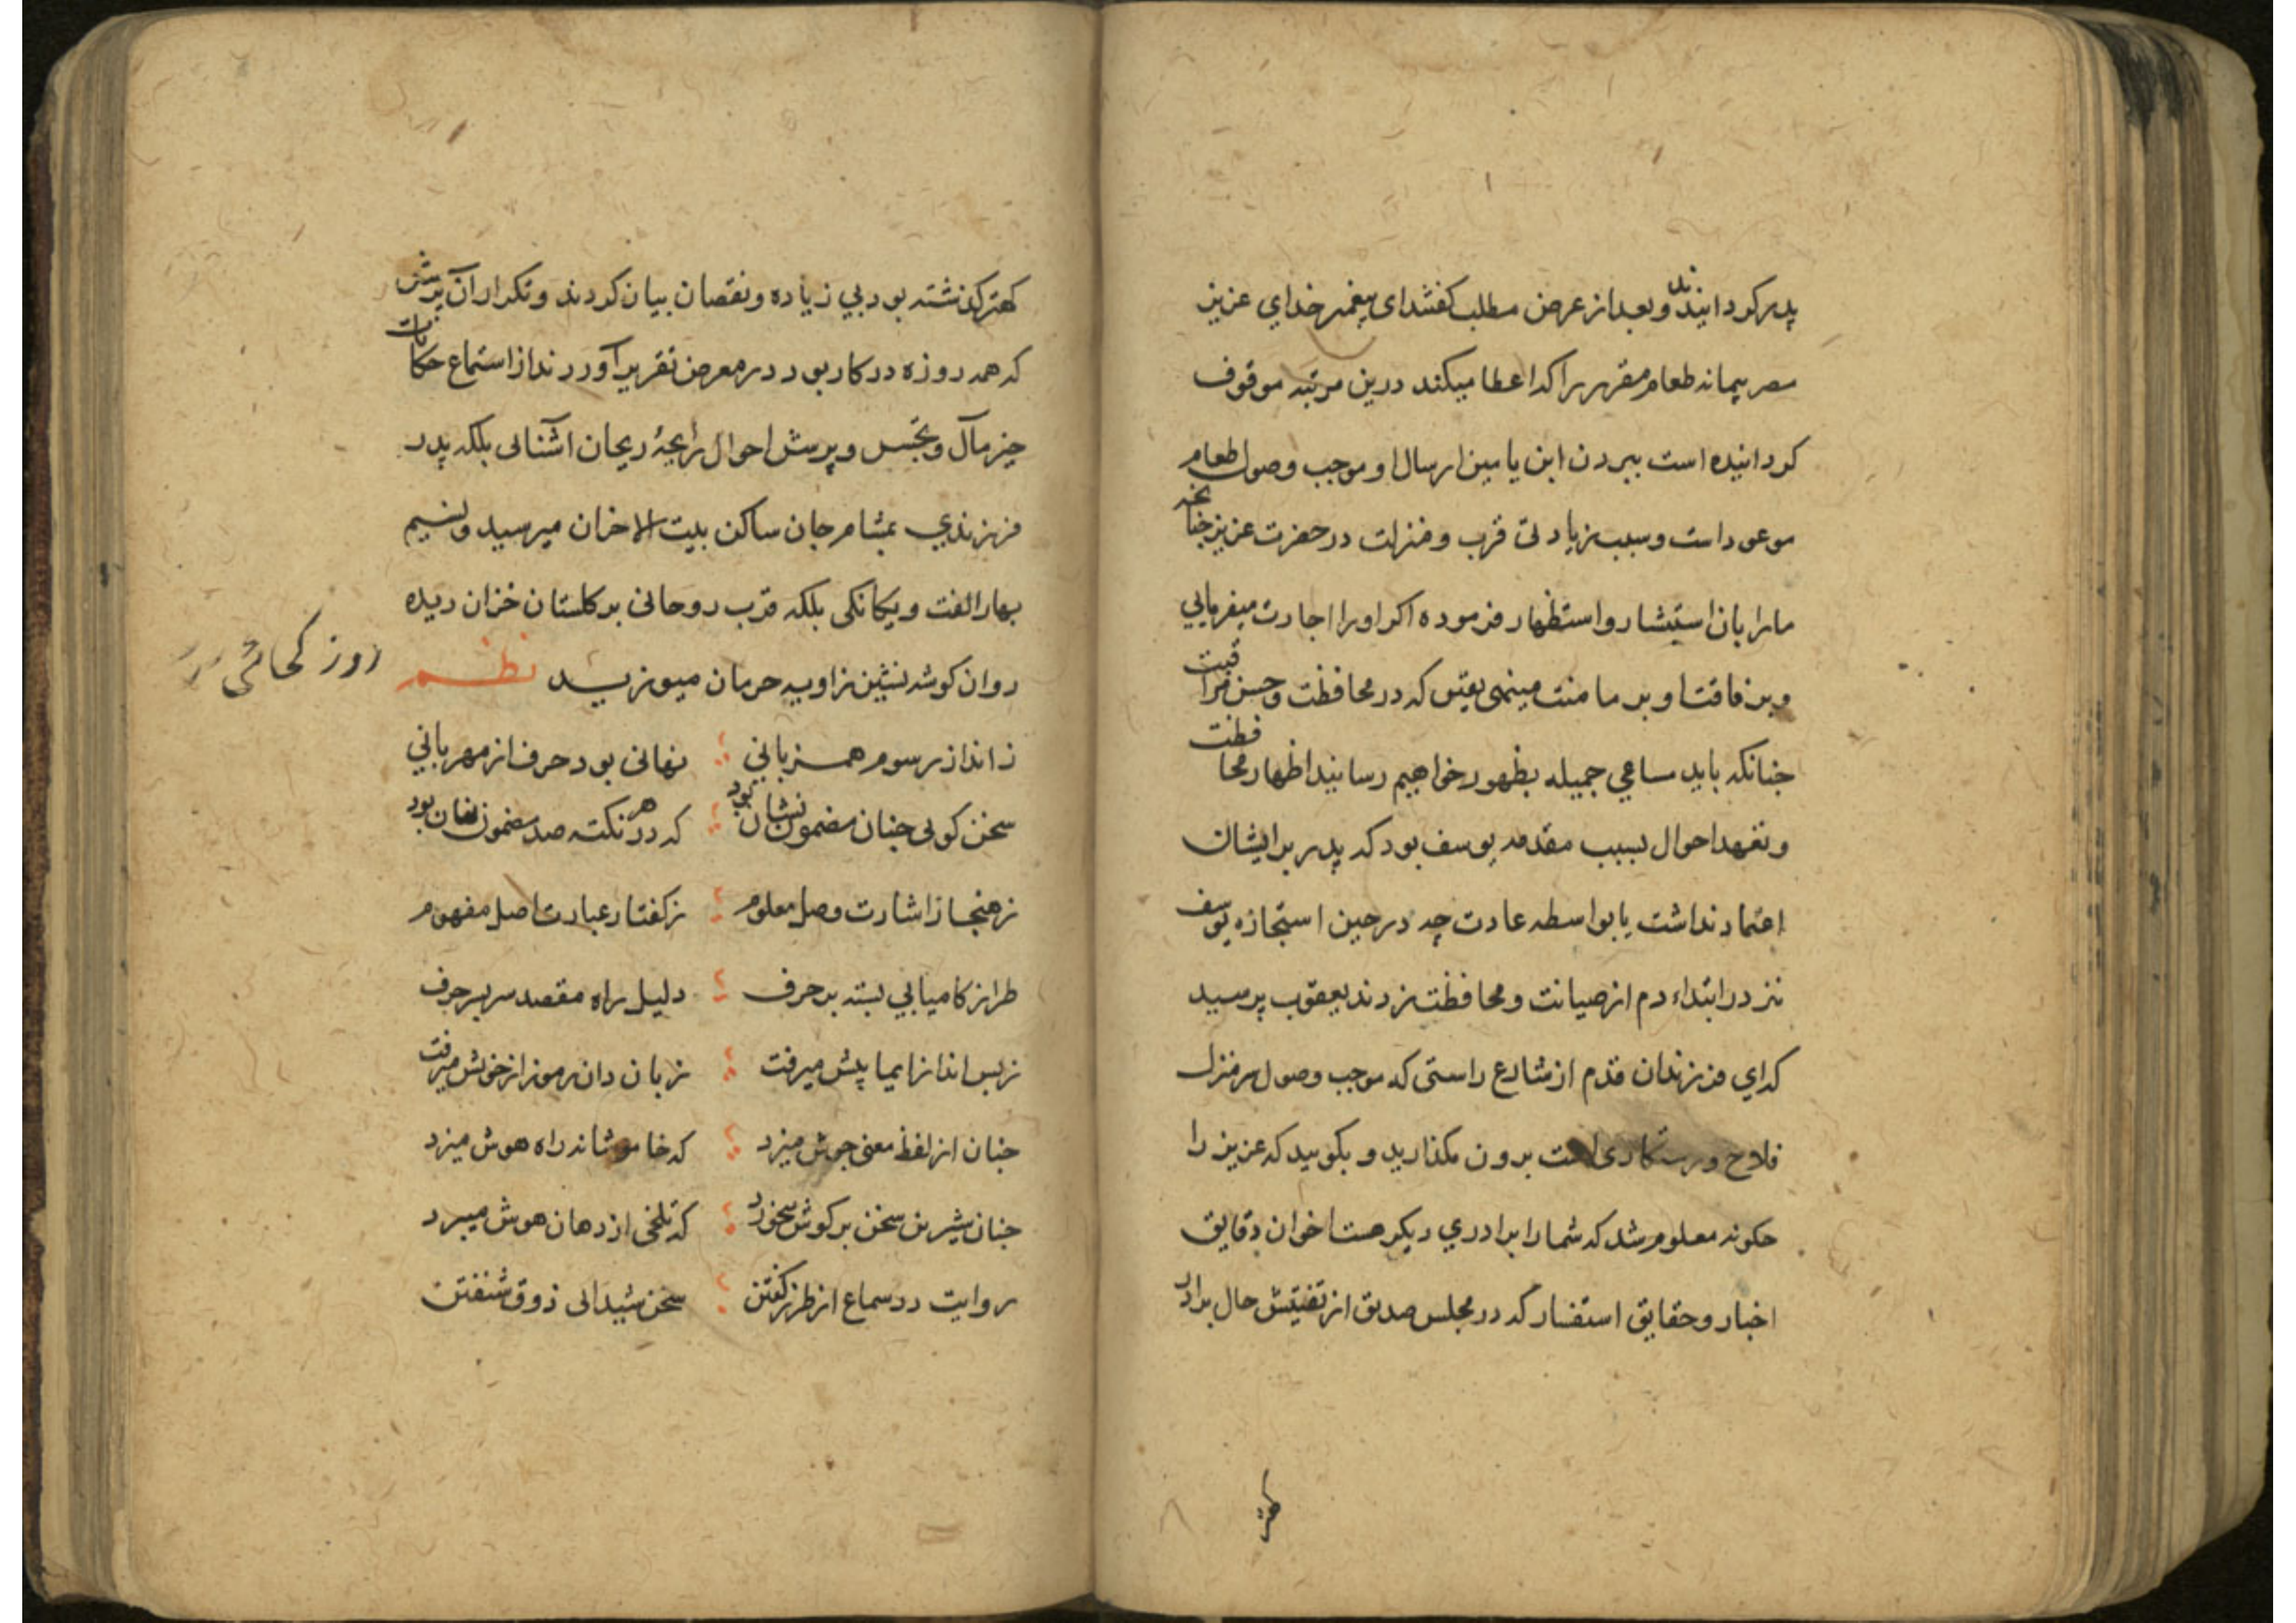 پدر کردانیدند و بعد از عرض مطلب کفتند ای پیغمبر خدای عزیز
مصر پیمانه طعام مقرر را که اعطا میکند درین مرتبه موقوف
کردانیده است ببردن ابن یامین ارسال او موجب وصول طعام
موعود است و سبب زیادتی قرب و منزلت در حضرت عزیز چنانچه
مارا بان استیشار و استظهار فرموده اکر اورا اجازت میفرمایی
و برفاقت او بر ما منت مینهی یقین که در محافظت و حسن مراقبت
چنانکه باید مساعی جمیله بظهور خواهیم رسانید اظهار محافظت
و تعهد احوال بسبب مقدمه یوسف بود که پدر بر ایشان
اعتماد نداشت یا بواسطه عادت چه در حین استجازه یوسف
نیز در ابتداء دم از صیانت و محافظت زدند یعقوب پرسید
که ای فرزندان قدم از شارع راستی که موجب وصول سرمنزل
فلاح و رستکاری است برون مکذارید و بکویید که عزیز را
چکونه معلوم شد که شمارا برادری دیکر هست اخوان دقایق
اخبار و حقایق استفسار که در مجلس صدیق از تفتیش حال برادر
کهتر
کهتر کذشته بود بی زیاده و نقصان بیان کردند و تکرار آن پرسش
که همه روزه در کار بود در معرض تقریر آوردند از استماع حکایات
خیر مآل و تجسس و پرسش احوال رایحهٔ ریحان آشنائی بلکه پدر
فرزندی بمشام جان ساکن بیت الاحزان میرسید و نسیم
بهار الفت و یکانکی بلکه قرب روحانی بر کلستان خزان دیده
روان کوشه نشین زاویه حرمان میوزید نظم
روز
ز انداز رسوم همزبانی نهانی بود حرف از مهربانی
سخن کوئی چنان مضمون نشان بود که در هر نکته صد مضمون نهان بود
ز هنجار اشارت وصل معلوم ز کفتار عبارت اصل مفهوم
طراز کامیابی بسته بر حرف دلیل راه مقصد سربسر حرف
ز بس انداز ایما پیش میرفت زبان دان رموز از خویش میرفت
چنان از لفظ معنی جوش میزد که خاموشانه راه هوش میزد
چنان شیرین سخن بر کوش میخورد که تلخی از دهان هوش میبرد
روایت در سماع از طرز کفتن سخن شیدائی ذوق شنفتن